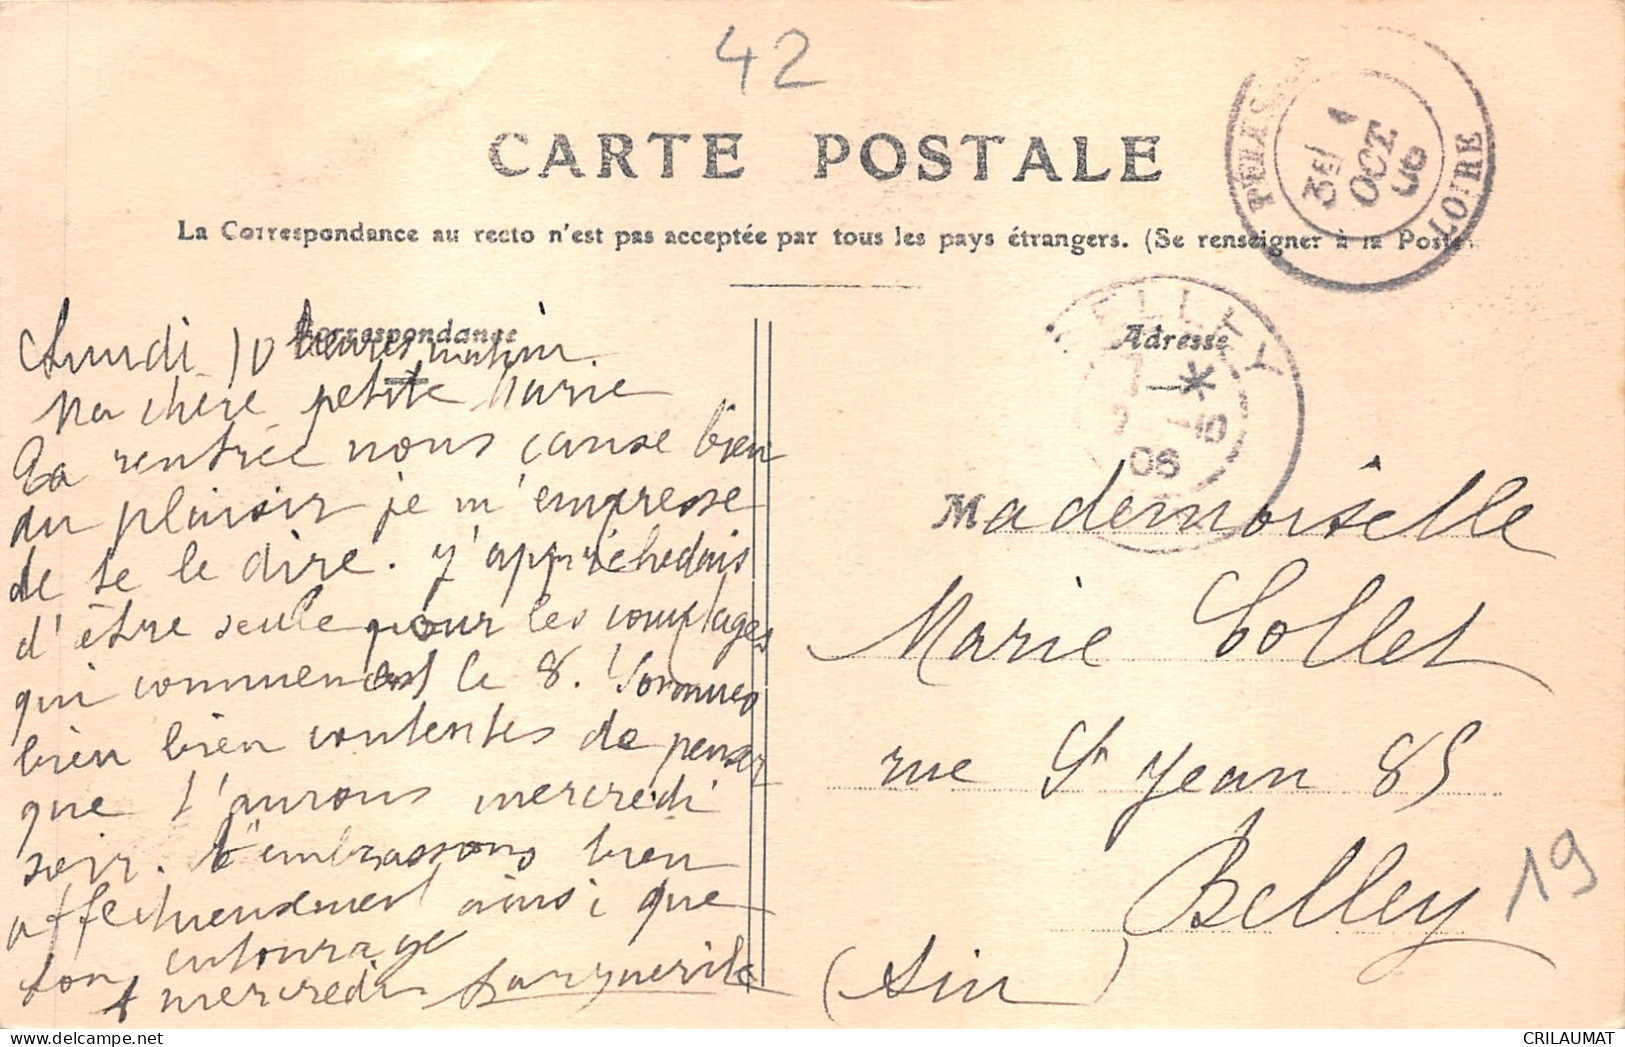 42
CARTE POSTALE
La Correspondance au recto n'est pas acceptée par tous les pays étrangers. (Se renseigner à la Poste
LOIRE
3E 1
OCT
06
Correspondance
Lundi 10 heures matin
Ma chère petite Marie
Ta rentrée nous cause bien
du plaisir je m'empresse
de te le dire. J'appréhedais
d'être seule pour les comptages
qui commencent le 8. Sommes
bien bien contentes de penser
que t'aurons mercredi
soir. t'embrassons bien
affectueusement ainsi que
ton entourage
à mercredi Marguerite
BELLEY
Adresse
7 *
10
06
Mademoiselle
Marie Collet
rue St Jean 85
Belley
(Ain)
19
CRILAUMAT